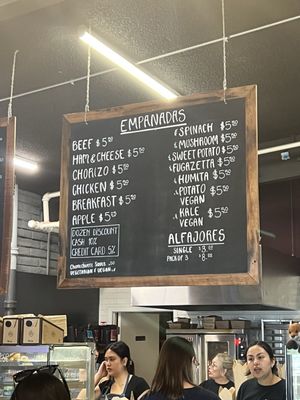 EMPANADAS
BEEF $5.50
HAM & CHEESE $5.50
CHORIZO $5.50
CHICKEN $5.50
BREAKFAST $5.50
APPLE $5.50
DOZEN DISCOUNT
CASH 10%
CREDIT CARD 5%
CHIMICHURRI SAUCE
VEGETARIAN VEGAN
SPINACH $5.50
MUSHROOM $5.50
SWEET POTATO $5.50
FUGAZETTA $5.50
HUMITA $5.50
POTATO $5.50
VEGAN
KALE $5.50
VEGAN
ALFAJORES
SINGLE
PACK OF 3